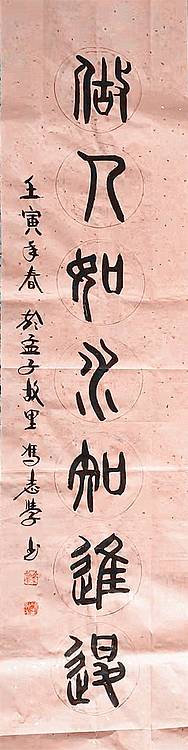 做人如水知進退
壬寅年春於孟子故里馮志學書